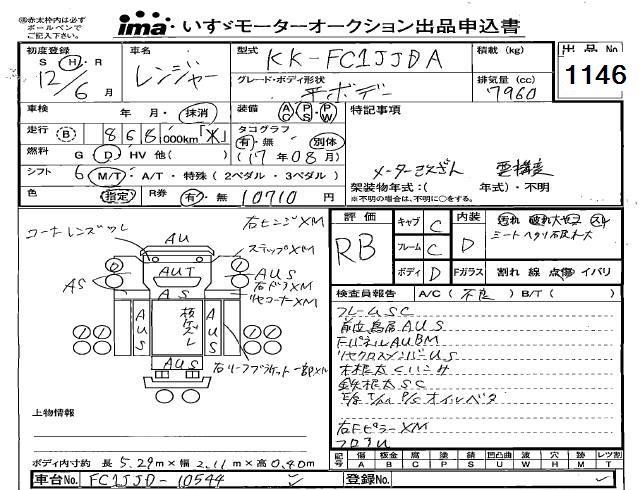 ㊟赤太枠内は必ず
ボールペンで
ご記入下さい。
ima いすゞモーターオークション出品申込書
初度登録 S H R 12/6 月
車名 レンジャー
型式 KK-FC1JJDA
積載 (kg)
出品 No 1146
グレード・ボディ形状 平ボデー
排気量 (cc) 7960
車検 年 月・抹消
装備 AC PS PW
特記事項
走行 B 868,000km「*」
タコグラフ 有・無 別体
燃料 G D HV 他( )
(17年08月)
シフト 6 M/T・A/T・特殊(2ペダル・3ペダル)
色 指定
R券 有・無 10710 円
架装物年式:( 年式)・不明
※不明の場合は、不明に○をする。
評価 RB
キャブ C
フレーム C
ボディ D
内装 D
Fガラス 割れ 線 点傷 イバリ
検査員報告 A/C(不良)B/T( )
フレームSC
前立鳥居AUS
FパネルAUBM
リヤクロスメンバーUS
木根太くハンサ
鉄根太SC
P/Sオイルベタ
右FピラーXM
フロアU
コーナーレンズワレ
右ヒンジXM
ステップXM
AU
AUT
AUS
右ドアXM
リヤコーナーXM
AS
AS
AUS
AUS
板ケズレ
AUS
右リーフブラケット一部XM
上物情報
ボディ内寸約 長 5.29m×幅 2.11m×高 0.40m
記号 傷A 板金B 腐C 塗P 錆S 凹凸曲U 波W 穴H 跡M レツ割T
車台No. FC1JJD-10544
登録No.